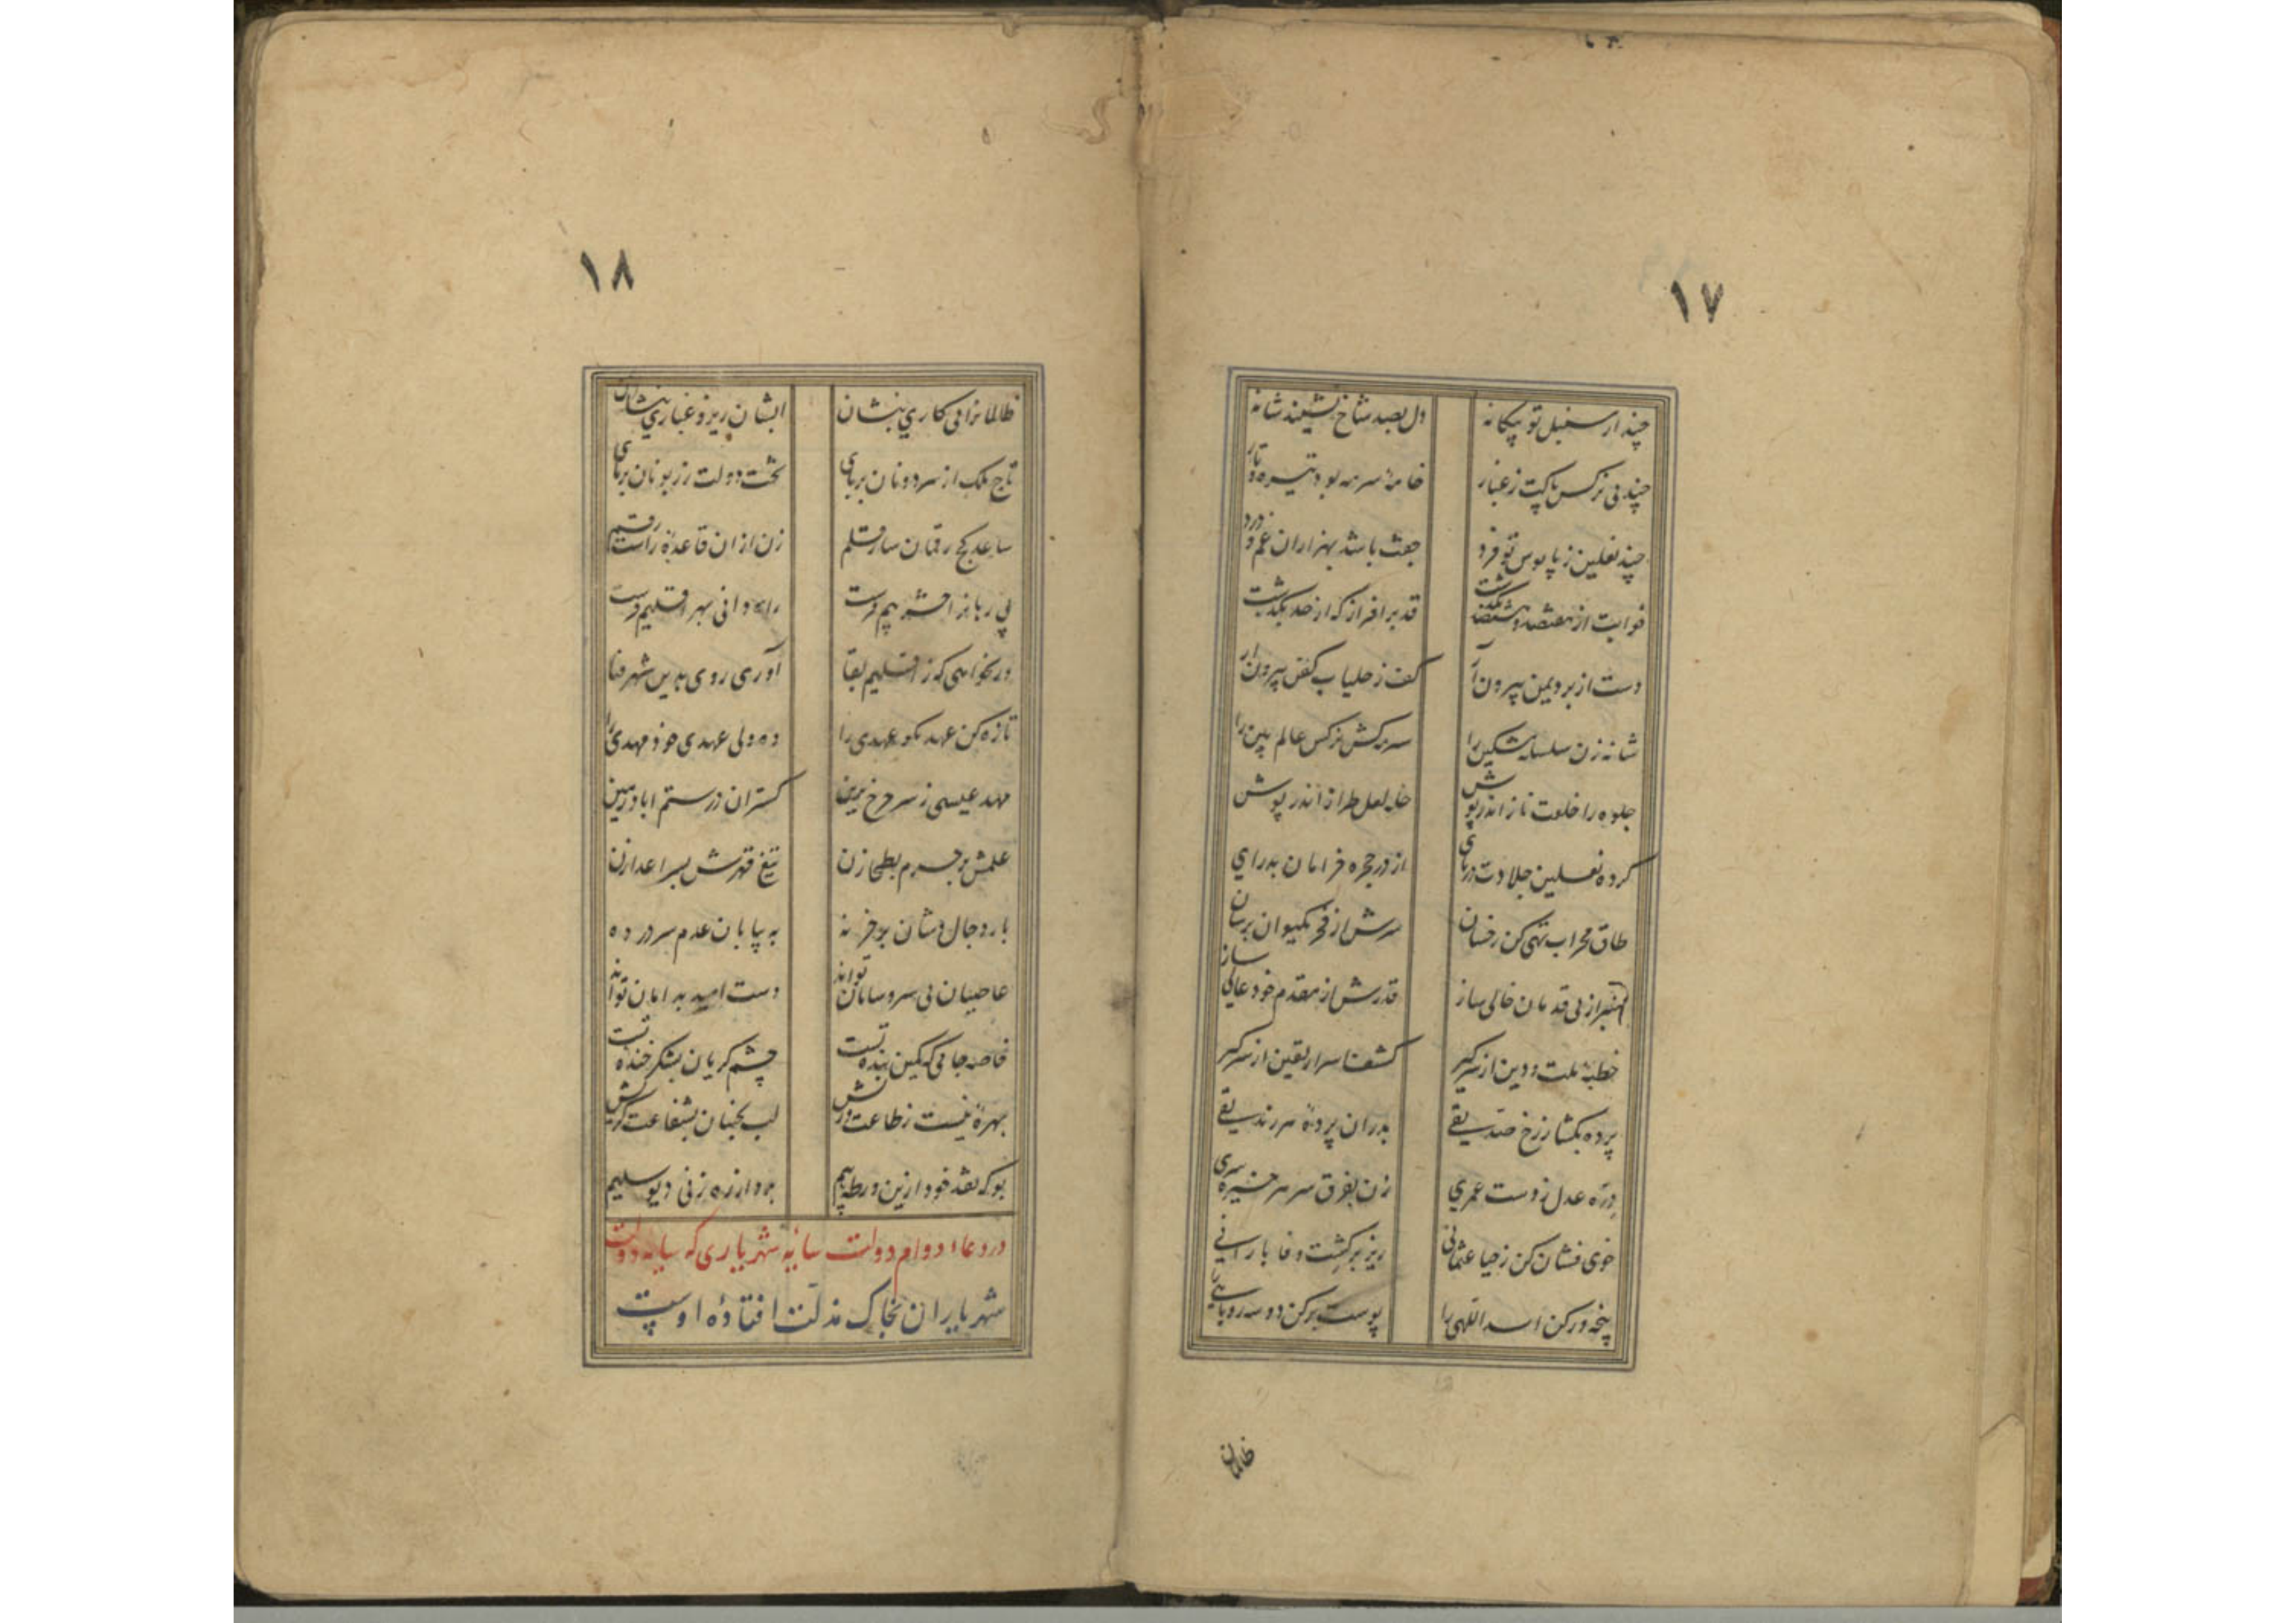 ١٧
چند از سنبل تو بیکانه دل بصد شاخ نشیند شانه
چند بی نرکس پاکت ز غبار خامهٔ سرمه بود تیره و تار
چند نعلین ز پابوس تو فرد جفت باشد بهزاران غم و درد
خوابت از هفتصد و هشتصد بگذشت قد برافراز که از حد بگذشت
دست از برد یمین بیرون آر کف ز جلباب کفن بیرون آر
شانه زن سلسلهٔ مشکین را سرمه کش نرکس عالم بین را
جلوه را خلعت ناز اندر پوش حله لعل طراز اندر پوش
کرده نعلین جلادت در پای از در حجره خرامان بدرای
طاق محراب تهی کن ز خسان سرش از فخر بکیوان برسان
منبر از بی قدمان خالی ساز قدرش از مقدم خود عالی ساز
خطبهٔ ملت و دین از سر کیر کشف اسرار یقین از سر کیر
پرده بکشا ز رخ صدیقی بدران پردهٔ سر زندیقی
درّه عدل ز دست عمری زن بفرق سر هر خیره سری
خوی فشان کن ز حیا عثمانی ریز بر کشت وفا بارانی
پنجه در کن اسد اللهی را پوست بر کن دو سه روباهی را
ظالمان
١٨
ظالمانرا پی کاری بنشان ابشان ریز و غباری بنشان
تاج ملک از سر دونان بربای تخت دولت ز زبونان بربای
ساعد کج رقمان ساز قلم زن ازان قاعدهٔ راست رقم
پی ربا نه افسر بیم فرست راه دانی بهر اقلیم فرست
ور نخواهی که ز اقلیم بقا آوری روی بدین شهر فنا
تازه کن عهد نکو عهدی را ده ولی عهدی خود مهدی را
مهد عیسی ز سر چرخ برین کستران در ستم اباد زمین
علمش بر حرم بطحا زن تیغ قهرش بسر اعدا زن
بار دجال وشان بر خر نه به بیابان عدم سر در ده
عاصیان بی سر و سامان تواند دست امید به امان تواند
خاصه جامی که کمین بنده تست چشم کریان بشکر خنده تست
بهرهٔ نیست ز طاعت ورزش لب بجنبان بشفاعت کریش
بو که نقد خود ازین ورطه بیم برد از ره زنی دیو سلیم
در دعاء دوام دولت سایهٔ شهریاری که سایه دولت
شهریاران بخاک مذلت افتادهٔ اوست